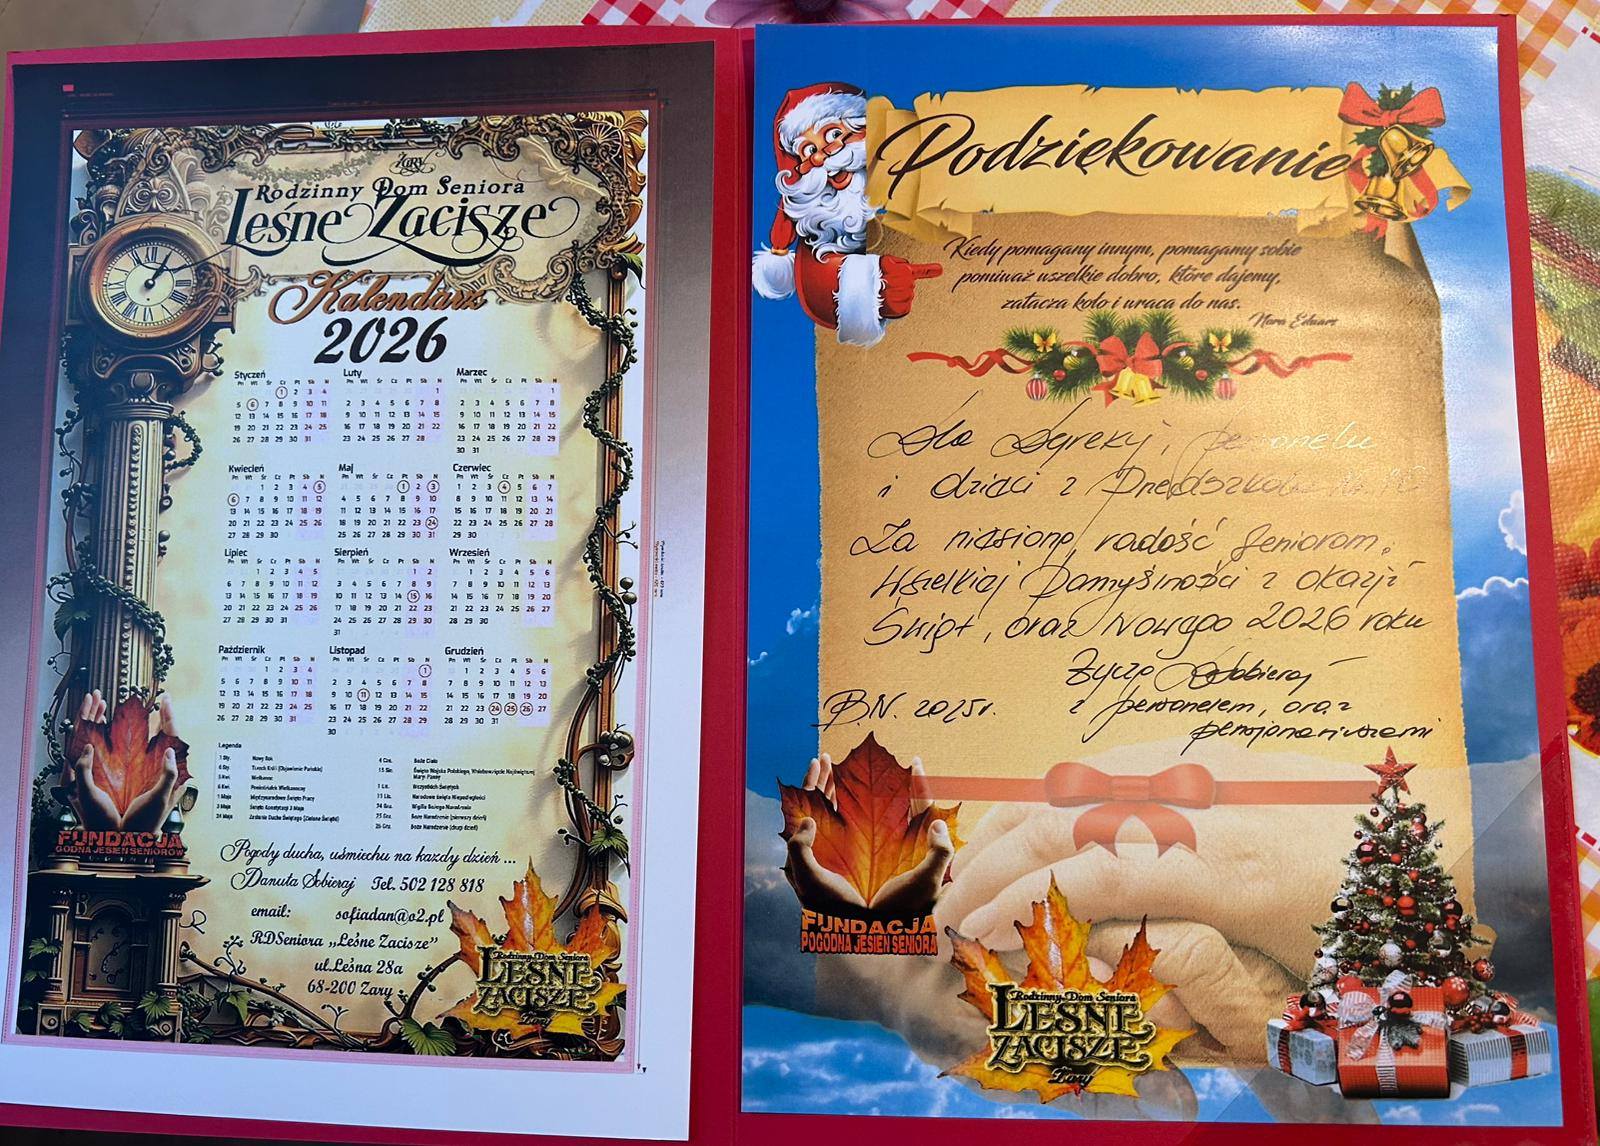 Żary
Rodzinny Dom Seniora
Leśne Zacisze
Kalendarz
2026
Styczeń
Pn Wt Śr Cz Pt Sb N
1 2 3 4
5 6 7 8 9 10 11
12 13 14 15 16 17 18
19 20 21 22 23 24 25
26 27 28 29 30 31
Luty
Pn Wt Śr Cz Pt Sb N
1
2 3 4 5 6 7 8
9 10 11 12 13 14 15
16 17 18 19 20 21 22
23 24 25 26 27 28
Marzec
Pn Wt Śr Cz Pt Sb N
1
2 3 4 5 6 7 8
9 10 11 12 13 14 15
16 17 18 19 20 21 22
23 24 25 26 27 28 29
30 31
Kwiecień
Pn Wt Śr Cz Pt Sb N
1 2 3 4 5
6 7 8 9 10 11 12
13 14 15 16 17 18 19
20 21 22 23 24 25 26
27 28 29 30
Maj
Pn Wt Śr Cz Pt Sb N
1 2 3
4 5 6 7 8 9 10
11 12 13 14 15 16 17
18 19 20 21 22 23 24
25 26 27 28 29 30 31
Czerwiec
Pn Wt Śr Cz Pt Sb N
1 2 3 4 5 6 7
8 9 10 11 12 13 14
15 16 17 18 19 20 21
22 23 24 25 26 27 28
29 30
Lipiec
Pn Wt Śr Cz Pt Sb N
1 2 3 4 5
6 7 8 9 10 11 12
13 14 15 16 17 18 19
20 21 22 23 24 25 26
27 28 29 30 31
Sierpień
Pn Wt Śr Cz Pt Sb N
1 2
3 4 5 6 7 8 9
10 11 12 13 14 15 16
17 18 19 20 21 22 23
24 25 26 27 28 29 30
31
Wrzesień
Pn Wt Śr Cz Pt Sb N
1 2 3 4 5 6
7 8 9 10 11 12 13
14 15 16 17 18 19 20
21 22 23 24 25 26 27
28 29 30
Październik
Pn Wt Śr Cz Pt Sb N
1 2 3 4
5 6 7 8 9 10 11
12 13 14 15 16 17 18
19 20 21 22 23 24 25
26 27 28 29 30 31
Listopad
Pn Wt Śr Cz Pt Sb N
1
2 3 4 5 6 7 8
9 10 11 12 13 14 15
16 17 18 19 20 21 22
23 24 25 26 27 28 29
30
Grudzień
Pn Wt Śr Cz Pt Sb N
1 2 3 4 5 6
7 8 9 10 11 12 13
14 15 16 17 18 19 20
21 22 23 24 25 26 27
28 29 30 31
Legenda
1 Sty. Nowy Rok
6 Sty. Trzech Króli (Objawienie Pańskie)
5 Kwi. Wielkanoc
6 Kwi. Poniedziałek Wielkanocny
1 Maja Międzynarodowe Święto Pracy
3 Maja Święto Konstytucji 3 Maja
24 Maja Zesłanie Ducha Świętego (Zielone Świątki)
4 Cze. Boże Ciało
15 Sie. Święto Wojska Polskiego, Wniebowzięcie Najświętszej
Maryi Panny
1 Lis. Wszystkich Świętych
11 Lis. Narodowe Święto Niepodległości
24 Gru. Wigilia Bożego Narodzenia
25 Gru. Boże Narodzenie (pierwszy dzień)
26 Gru. Boże Narodzenie (drugi dzień)
Pogody ducha, uśmiechu na każdy dzień ...
Danuta Sobieraj Tel. 502 128 818
email: sofiadan@o2.pl
RDSeniora „Leśne Zacisze”
ul.Leśna 28a
68-200 Żary
FUNDACJA
GODNA JESIEŃ SENIORÓW
Rodzinny Dom Seniora
LEŚNE
ZACISZE
Żary
Podziękowanie
Kiedy pomagamy innym, pomagamy sobie
ponieważ wszelkie dobro, które dajemy,
zatacza koło i wraca do nas.
Dla Dyrekcji, personelu
i dzieci z Przedszkola
Za niesioną radość Seniorom,
Wszelkiej Pomyślności z okazji
Świąt, oraz Nowego 2026 roku
życzą Sobieraj
B.N. 2025r. z personelem, oraz
pensjonariuszami
FUNDACJA
POGODNA JESIEŃ SENIORA
Rodzinny Dom Seniora
LEŚNE
ZACISZE
Żary